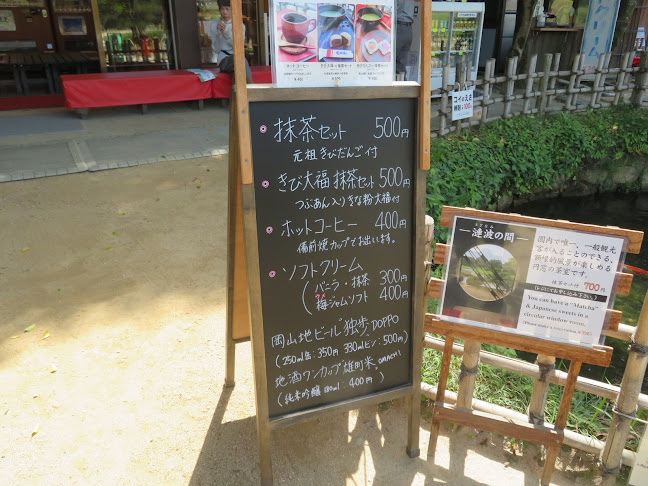 抹茶セット 500円
元祖きびだんご付
きび大福抹茶セット 500円
つぶあん入りきな粉大福付
ホットコーヒー 400円
備前焼カップでお出しします。
ソフトクリーム
(バニラ・抹茶 300円
梅ジャムソフト 400円
岡山地ビール独歩、DOPPO
(250ml缶:350円 330mlビン:500円)
地酒ワンカップ雄町米、OMACHI
(純米吟醸 180ml:400円)
ホットコーヒー
コイのえさ
100円
漣波の間
国内で唯一、一般観光
客が入ることのできる、
額縁的風景が楽しめる
円窓の茶室です。
抹茶セット付 700円
You can have a "Matcha"
& Japanese sweets in a
circular window room.